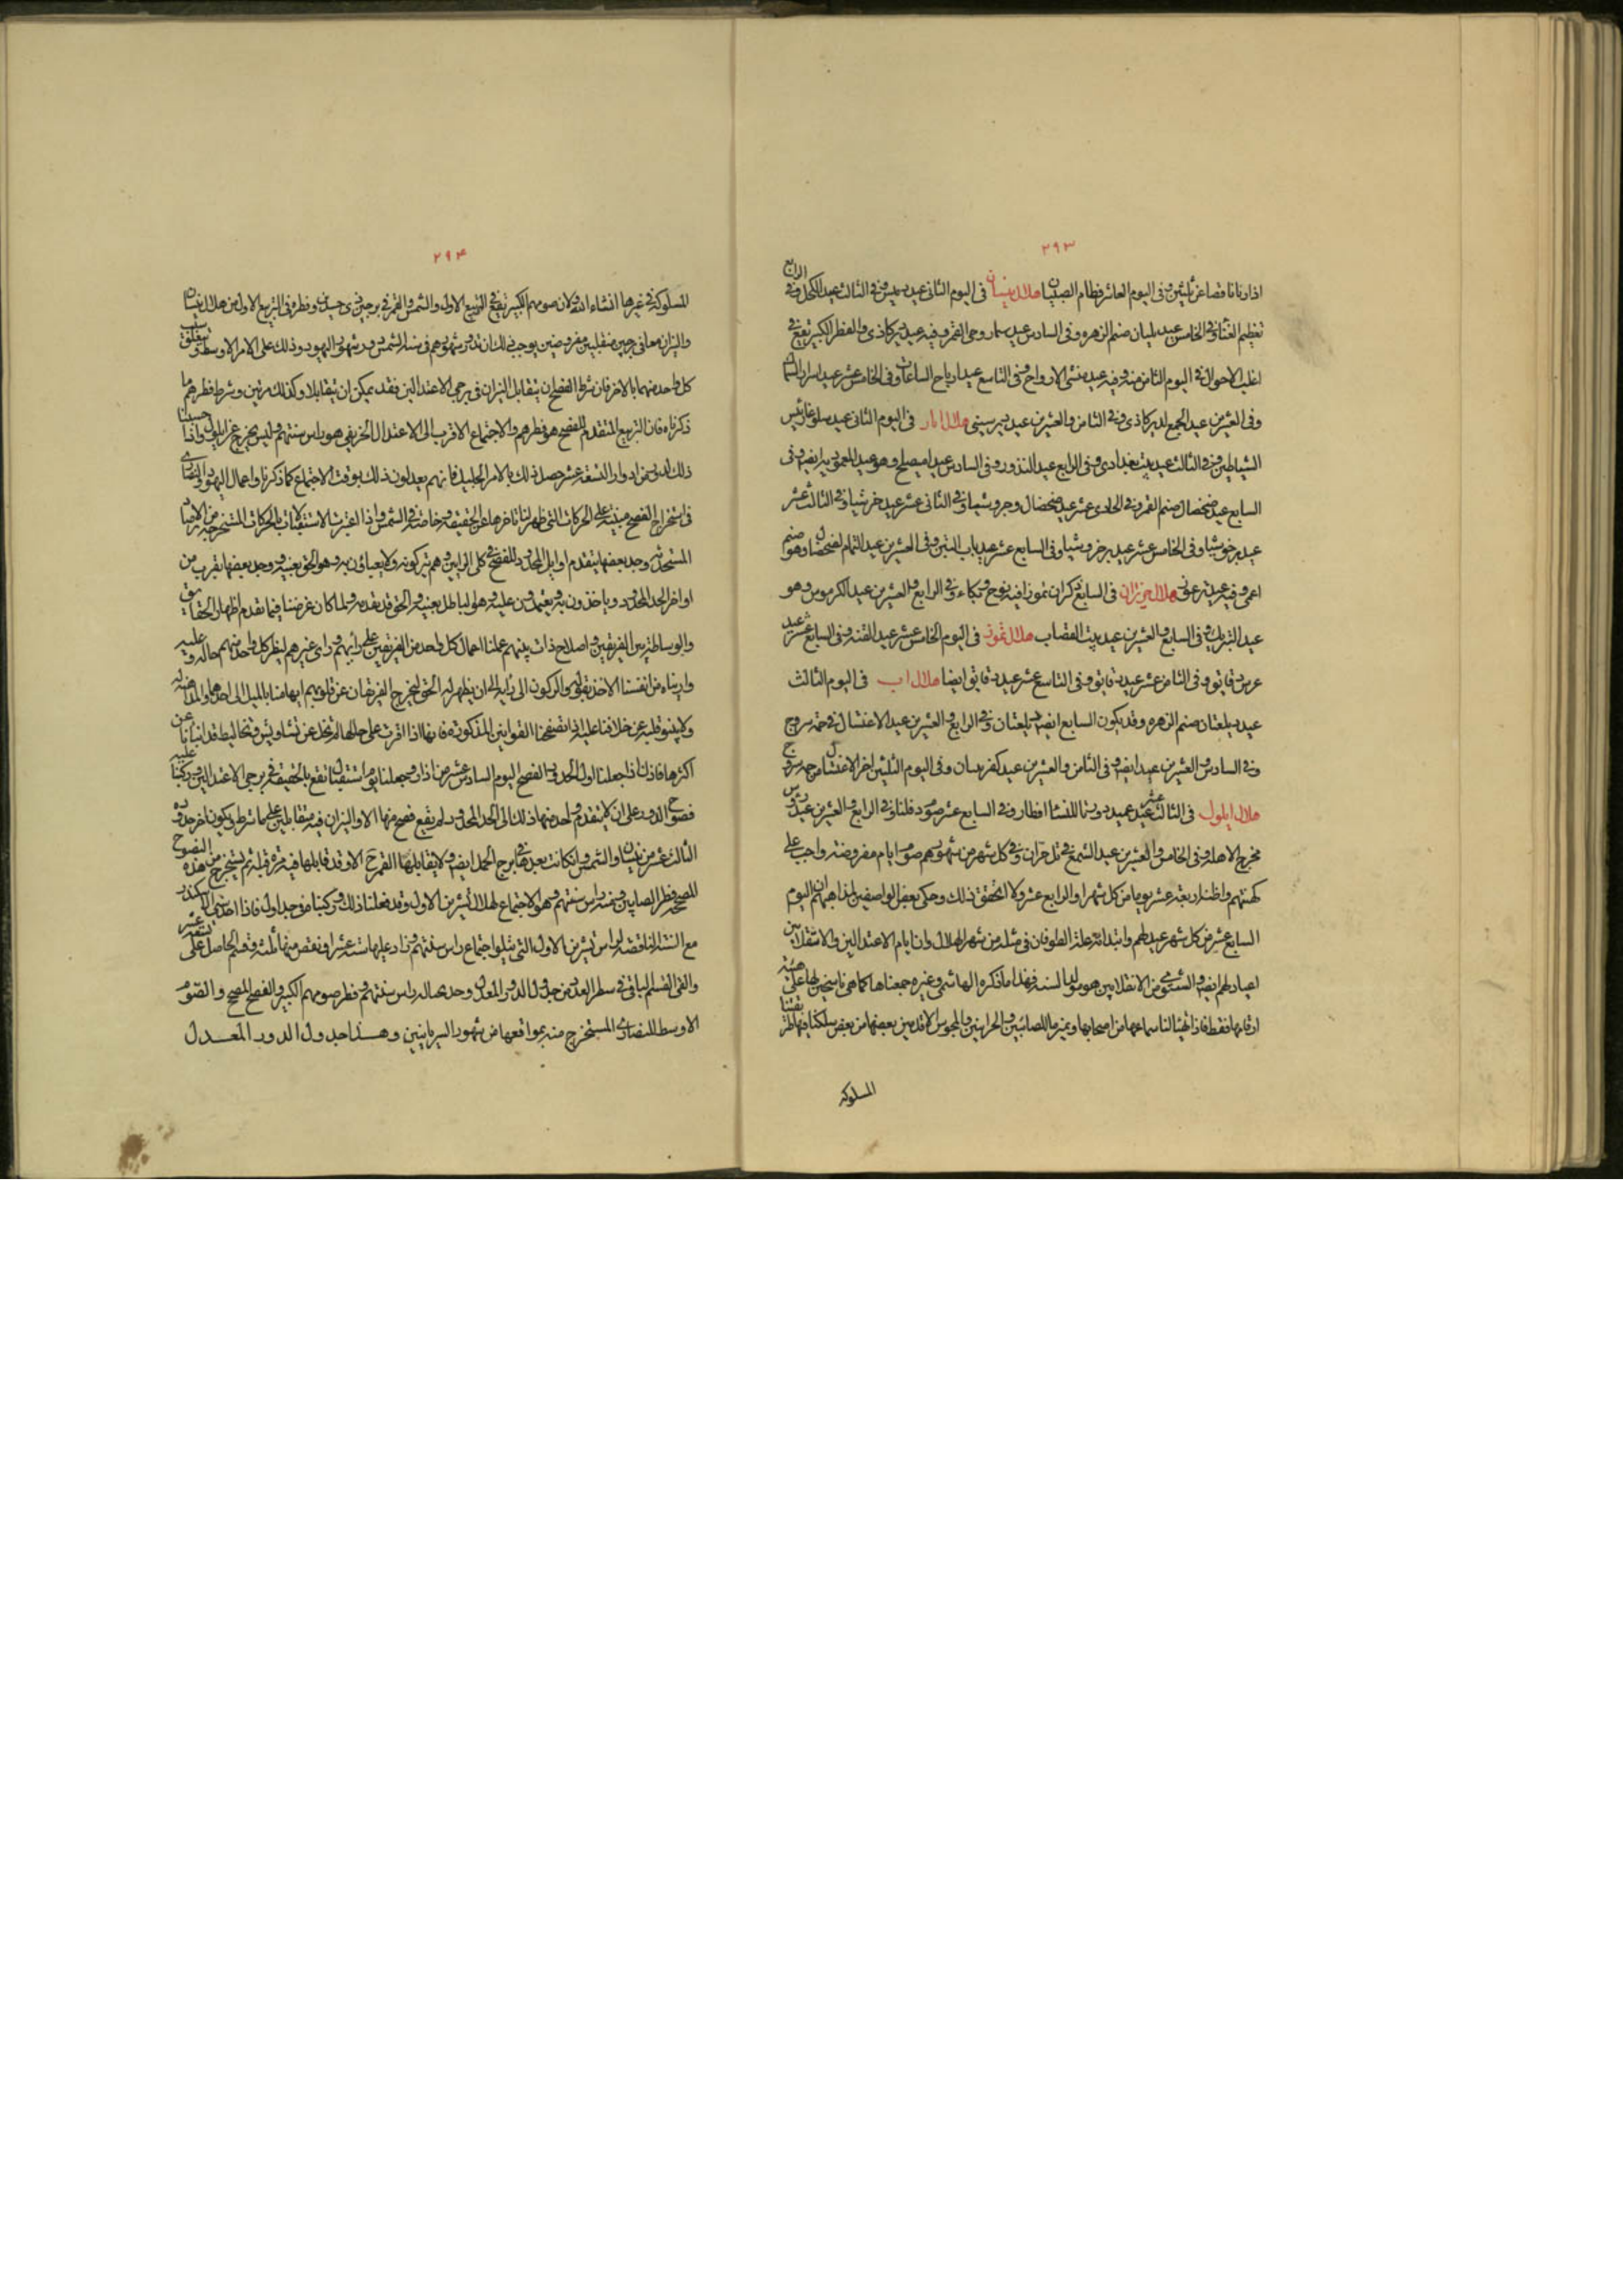 ٢٩٣
اذار نانا قضاعن ثلثين وفى اليوم العاشر فطام الصبيان هلال نيسان فى اليوم الثانى عيد دميس وفى الثالث عيد الكحل وفى الرابع
وفى الخامس عيد بليان صنم الزهره وفى السادس عيد سمار وحى القمر وفيه عيد دير كاذى والفطر الكبير يقع فى
اغلب الاحوال فى اليوم الثامن منه وفيه عيد منشى الارواح وفى التاسع عيد ارباح الساعات وفى الخامس عشر عيد اسرار السماك
وفى العشرين عيد الجمع لدير كاذى وفى الثامن والعشرين عيد دير سينى هلال ايار فى اليوم الثانى عيد سلوغا رئيس
الشياطين وفى الثالث عيد بيت بغدادى وفى الرابع عيد النذور وفى السادس عيد اميصلح وهو عيد المعموديه ايضا وفى
السابع عيد ضحضال صنم القمر وفى الحادى عشر عيد ضحضال وجروشيا وفى الثانى عشر عيد خرشيا وفى الثالث عشر
عيد برخوشيا وفى الخامس عشر عيد برخروشيا وفى السابع عشر عيد باب التين وفى العشرين عيد التمام لضحضال وهو صنم
اعمى وفيه عيد ترعوز هلال حزيران فى السابع تكران تموزا فيه نوح وبكاء وفى الرابع والعشرين عيد الكرموس وهو
عيد التبريك وفى السابع والعشرين عيد بيت القصاب هلال تموز فى اليوم الخامس عشر عيد الفتيه وفى السابع عشر عيد
عرس دقايق وفى الثامن عشر عيد دقايق وفى التاسع عشر عيد دقايق ايضا هلال اب فى اليوم الثالث
عيد ديلفتان صنم الزهره وقد يكون السابع ايضا ديلفتان وفى الرابع والعشرين عيد الاغتسال فى حمه سروج
وفى السادس والعشرين عيد ايضا وفى الثامن والعشرين عيد كفر ميسان وفى اليوم الثلثين اخر الاغتسال من حمه سروج
هلال ايلول فى الثالث عشر عيد عيد دورتا للنسا افطار وفى السابع عشر وفى الرابع والعشرين عيد رؤس
مخرج الاهله وفى الخامس والعشرين عيد الشمع فى تل حران وفى كل شهر من شهورهم صوم ايام مفروضه واجب على
كهنتهم واظنه اربعة عشر يوما من كل شهر او الرابع عشر ولا اتحقق ذلك وحكى بعض الواصفين لمذاهبهم ان اليوم
السابع عشر من كل شهر عيد لهم وابتدائه علة الطوفان فى مثله من شهر الهلال وان ايام الاعتدالين والانقلابين
اعياد لهم ايضا والشتوى من الانقلابين هو مولد السنه فهذا ما ذكره الهاشمى وغيره جمعناها كما هى ناسخين لها على هيئه
اوقاتها فقط فاذا تهيأ لنا سماعها من اصحابها وتميز ما للصابئين والحرانيين والمجوس الاقدمين بعضها من بعض سلكنا فيها طريقتنا
المسلوكه
٢٩٤
المسلوكة فى غيرها انشاء الله ولان صومهم الكبير يقع فى التربيع الاول والشمس والقمر فى برجين ذى جسدين وفطره فى التربيع الاول من هلال نيسان
والنيران معا فى برجين منقلبين مفروضين يوجب ذلك ان تدور شهورهم فى سنه الشمس دور شهور اليهود وذلك على الامر الاوسط
كل واحد منهما بالاخر فان شرط الفصح ان يتقابل النيران فى برجى الاعتدالين فقد يمكن ان يتقابلا وكذلك مرتين وشرط فطرهم ما
ذكرناه فان التربيع المتقدم للفصح هو فطرهم والاجتماع الاقرب الى الاعتدال الخريفى هو راس سنتهم وليس يخرج عن ايلول واذا حسبنا
ذلك لدور من ادوار التسعة عشر حصل ذلك بالامر الجليل فانهم يعدلون ذلك بوقت الاجتماع كما ذكرنا واعمال اليهود والنصارى
فى استخراج الفصح مبنيه على الحركات التى ظهر لنا تاخرها عن الحقيقه وخاصة فى الشمس واذا اعتبرت الاستقبالات بالحركات المستخرجه من الارصاد
المستحدثه وجد بعضها يتقدم اوايل الحد للفصح فى كلى الرايين وهم يتركونه ولا يعباؤن به وهو الحق بعينه ووجد بعضها يقرب من
اواخر الحد المحدود وياخذون به ويعتمدون عليه وهو الباطل بعينه والحق قد تقدمه ولما كان غرضنا فيما تقدم اظهار الحقايق
والوساطة بين الفريقين واصلاح ذات بينهم عملنا اعمال كل واحد من الفريقين على رايهم وراى غيرهم لينظر كل واحد منهم ما له وعليه
وارينا من انفسنا الاخذ بقولهم والركون الى رايه الى ان يظهر له الحق ليخرج الفريقان عن قلوبهم ايهامنا بالميل الى احدهما والمداهنه له
ولا ينبو قلبه عن خلافنا عليه اذا تصفحنا القوانين المذكوره فانها اذا اقرت على حالها لم تخل عن تشاويش وتخاليط قد انبأنا عن
اكثرها فاذن اذا جعلنا اول الحدود للفصح اليوم السادس عشر من اذار وجعلنا يوم استقبال تقع بالحقيقه فى برجى الاعتدالين وركبنا عليه
فصوح الدور على ان لا يتقدم واحد منها ذلك الى الحد المحدود لم يقع فصح منها الا والنيران فيه متقابلين على ما شرط ويكون اخر حدوده
الثالث عشر من نيسان والشمس وان كانت بعدها فى برج الحمل ايضا ولا يقابلها القمر الا وقد قابلها فيه مره قبله ثم يستخرج من هذه الفصوح
الصحيح فطر الصابيين ومنه راس سنتهم وهو الاجتماع لهلال تشرين الاول وقد فعلنا ذلك وركبناه فى جداول فاذا اخذنا سنى الاسكندر
مع السنه الناقصه لراس تشرين الاول التى يتلوا اجتماع راس سنتهم وزاد عليها ستة عشر او نقص منها ثلثة وقسم الحاصل على تسعة عشر
والقى القسم الباقى فى سطر العدد من جدول الدور المعدل وجد بحياله راس سنتهم وفطر صومهم الكبير والفصح المصحح والصوم
الاوسط للنصارى المستخرج منه بمواقعها من شهور السريانيين وهذا جدول الدور المعدل